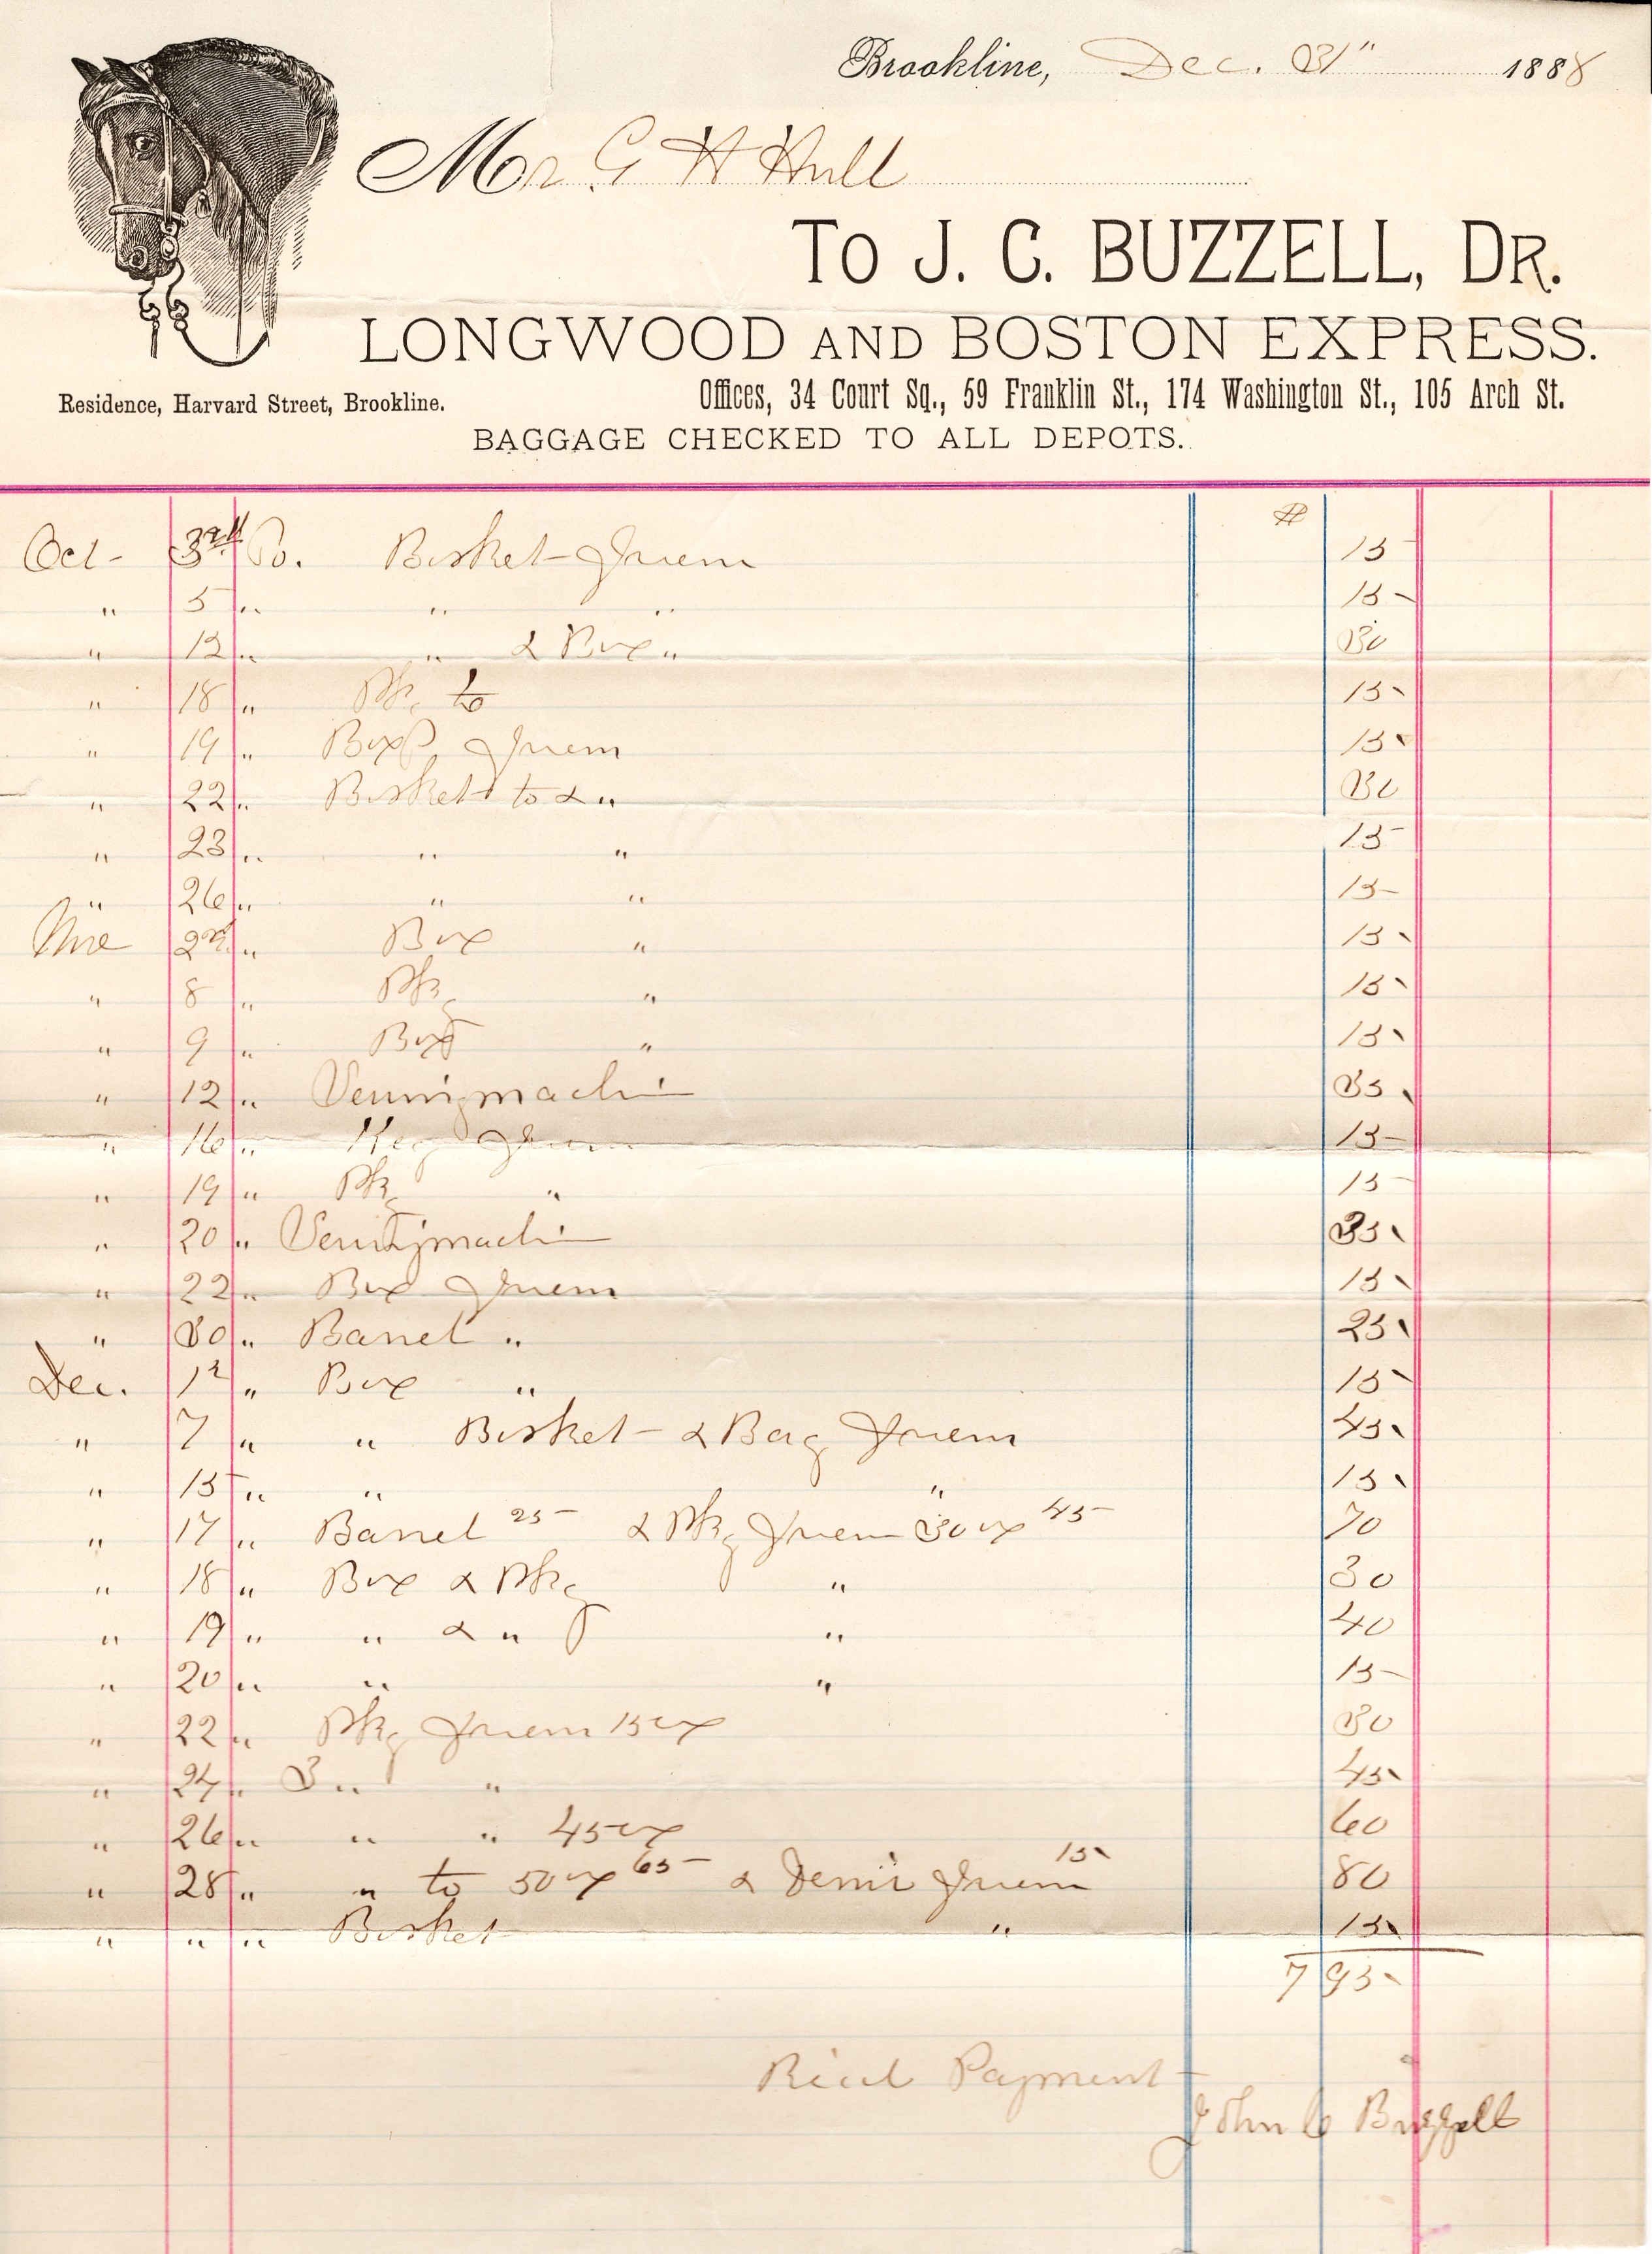 Brookline, Dec. 31" 1888
Mr G H Hull
To J. C. BUZZELL, DR.
LONGWOOD AND BOSTON EXPRESS.
Residence, Harvard Street, Brookline.
Offices, 34 Court Sq., 59 Franklin St., 174 Washington St., 105 Arch St.
BAGGAGE CHECKED TO ALL DEPOTS.
$
Oct 3rd To. Basket from 15
" 5 " " " 15
" 12 " " & Box " 30
" 18 " Pkg to 15
" 19 " Box from 15
" 22 " Basket to & " 30
" 23 " " " 15
" 26 " " " 15
Nov 2nd " Box " 15
" 8 " Pkg " 15
" 9 " Box " 15
" 12 " 35
" 16 " Keg from 15
" 19 " Pkg " 15
" 20 " 35
" 22 " Box from 15
" 30 " Barrel " 25
Dec. 1st " Box " 15
" 7 " " Basket & Bag from 45
" 15 " " " 15
" 17 " Barrel 25 & Pkg from 30 45 70
" 18 " Box & Pkg " 30
" 19 " " & " " 40
" 20 " " " 15
" 22 " Pkg from 15 30
" 24 " 3 " " 45
" 26 " " " 45 60
" 28 " " to 50 65 & from 15 80
" " " Basket " 15
7 95
Recd Payment
John C Buzzell